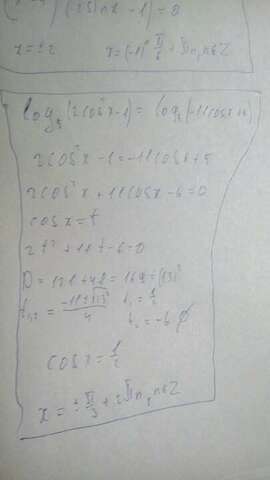 (2sinx - 1) = 0
x = ±2 x = (-1)ⁿ π/6 + πn, n∈Z
2cos²x - 1 = -11cosx + 5
2cos²x + 11cosx - 6 = 0
cosx = t
2t² + 11t - 6 = 0
D = 121 + 48 = 169 = (13)²
t₁,₂ = (-11 ± 13)/4 t₁ = 1/2
t₂ = -6 ∅
cosx = 1/2
x = ± π/3 + 2πn, n∈Z